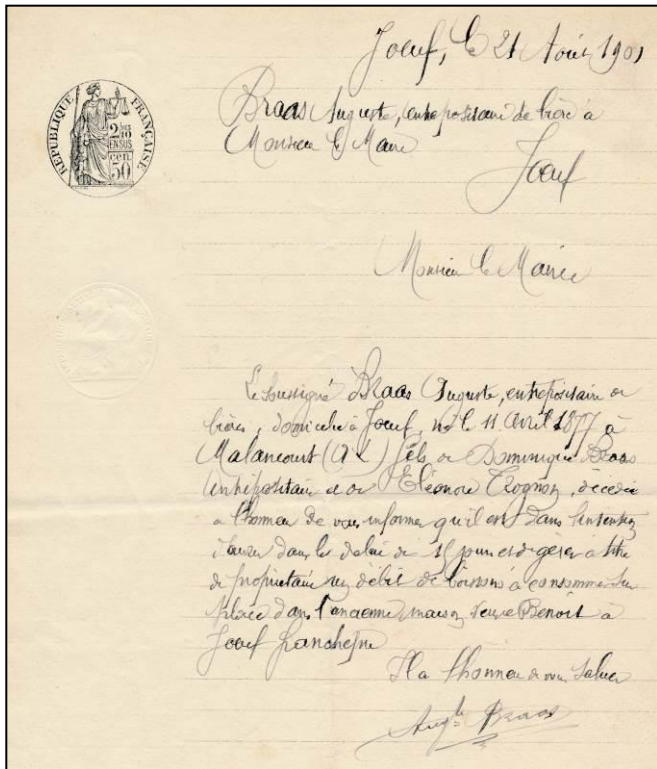 Joeuf, le 21 Août 1901
RÉPUBLIQUE FRANÇAISE
2/10
EN SUS
50 cen
Braas Auguste, entrepositaire de bière à
Monsieur le Maire
Joeuf
Monsieur le Maire
Le soussigné Braas Auguste, entrepositaire de
bières, domicilié à Joeuf, né le 11 avril 1877 à
Malancourt (A L) fils de Dominique Braas
entrepositaire et de Eléonore Trognon, décédée
a l'honneur de vous informer qu'il est dans l'intention
d'ouvrir dans le délai de 15 jours et de gérer à titre
de propriétaire un débit de boissons à consommer sur
place dans l'ancienne maison veuve Benoit à
Joeuf
Il a l'honneur de vous saluer
Aug^te Braas